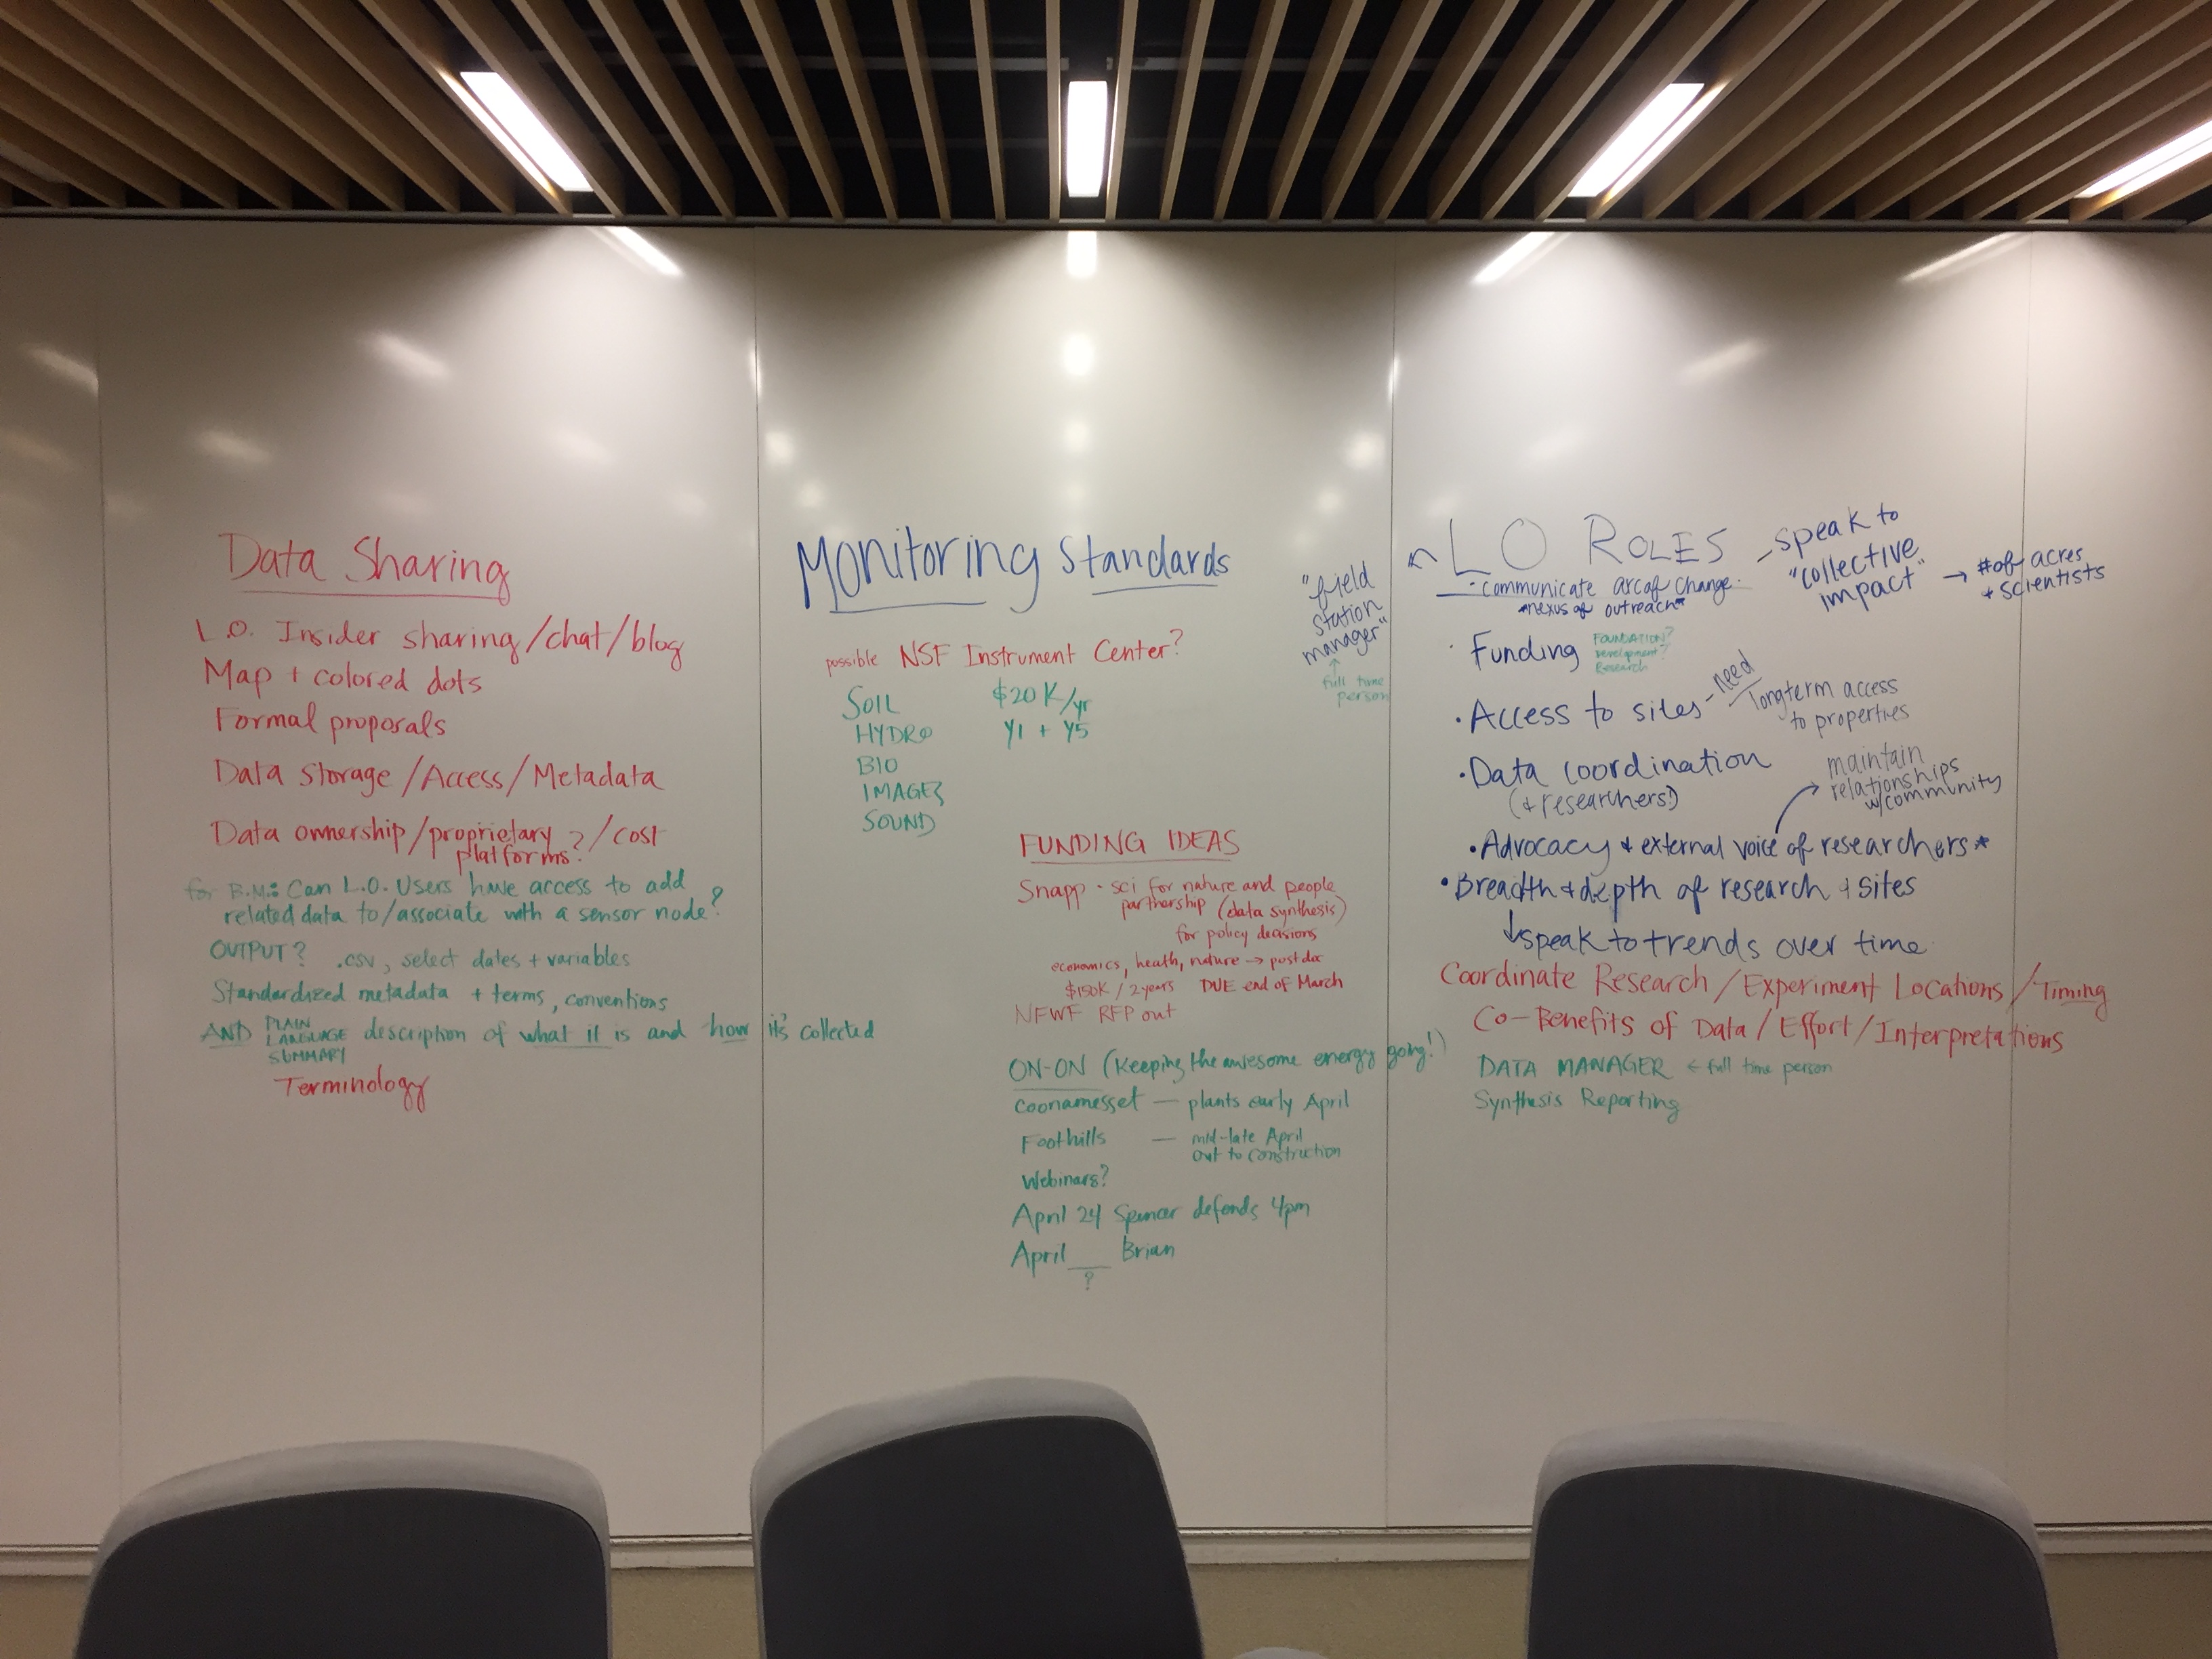 Data Sharing
L.O. Insider sharing/chat/blog
Map + colored dots
Formal proposals
Data Storage/Access/Metadata
Data ownership/proprietary platforms?/cost
for B.M.: Can L.O. Users have access to add
related data to/associate with a sensor node?
OUTPUT? .csv, select dates + variables
Standardized metadata + terms, conventions
AND PLAIN LANGUAGE SUMMARY description of what it is and how it's collected
Terminology
Monitoring Standards
possible NSF Instrument Center?
SOIL $20K/yr
HYDRO Y1 + Y5
BIO
IMAGES
SOUND
FUNDING IDEAS
Snapp - sci for nature and people
partnership (data synthesis)
for policy decisions
economics, heath, nature → postdoc
$150K / 2 years DUE end of March
NFWF RFP out
ON-ON (Keeping the awesome energy going!)
Coonamesset — plants early April
Foothills — mid-late April
out to construction
Webinars?
April 24 Spencer defends 4pm
April ___ Brian
?
"field
station
manager"
↑
full time
person
LO ROLES
- speak to
"collective
impact"
→ # of acres
+ scientists
· communicate arc of change.
*nexus of outreach*
· Funding
FOUNDATION?
Development?
Research
· Access to sites - need
longterm access
to properties
· Data coordination
(+ researchers!)
maintain
relationships
w/community
· Advocacy + external voice of researchers*
· Breadth + depth of research + sites
↳ speak to trends over time
Coordinate Research/Experiment Locations/Timing
Co-Benefits of Data/Effort/Interpretations
DATA MANAGER ← full time person
Synthesis Reporting